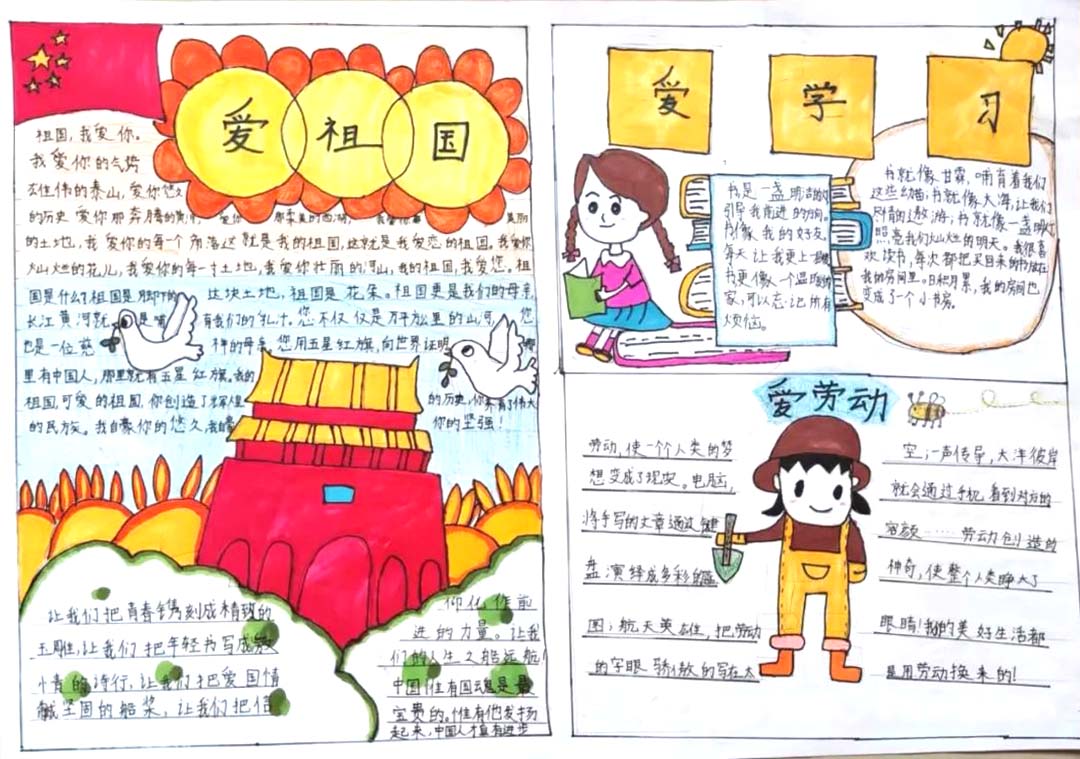 爱祖国
祖国,我爱你。
我爱你的气势
雄伟的泰山,爱你悠久
的历史 爱你那奔腾的黄河,
的土地,我爱你的每个角落这就是我的祖国,这就是我爱恋的祖国。我爱你
灿烂的花儿,我爱你的每一寸土地,我爱你壮丽的河山,我的祖国,我爱您。祖
国是什么?祖国是脚下的 这块土地,祖国是花朵。祖国更是我们的母亲,
长江黄河就 是哺 育我们的乳汁。您不仅仅是万平公里的山河, 您
也是一位慈 祥的母亲,您用五星红旗,向世界证明 哪
里有中国人,那里就有五星红旗。我的
祖国,可爱的祖国,你创造了辉煌 的历史,你养育了伟大
的民族。我自豪你的悠久,我爱 你的坚强!
让我们把青春镌刻成精致的
玉雕,让我们把年轻书写成激
情的诗行,让我们把爱国情
献坚固的船桨,让我们把信
仰化作前
进的力量。让我
们的人生之船远航!
中国惟有国魂是最
宝贵的。惟有他发扬
起来,中国人才有进步
爱学习
书是一盏明洁的灯
引导我前进的方向。
书像我的好友,
每天让我更上一层楼
书更像一个温暖的
家,可以忘记所有
烦恼。
书就像甘霖,哺育着我们
这些幼苗;书就像大海,让我们
尽情的遨游;书就像一盏明灯
照亮我们灿烂的明天。我很喜
欢读书,每次都把买回来的书放在
我的房间里。日积月累,我的房间也
变成了一个小书房。
爱劳动
劳动,使一个个人类的梦
想变成了现实。电脑,
将手写的文章通过键
盘演绎成多彩的蓝
图;航天英雄,把劳动
的字眼骄傲的写在太
空;一声传导,大洋彼岸
就会通过手机看到对方的
容颜……劳动创造的
神奇,使整个人类睁大了
眼睛!我的美好生活都
是用劳动换来的!